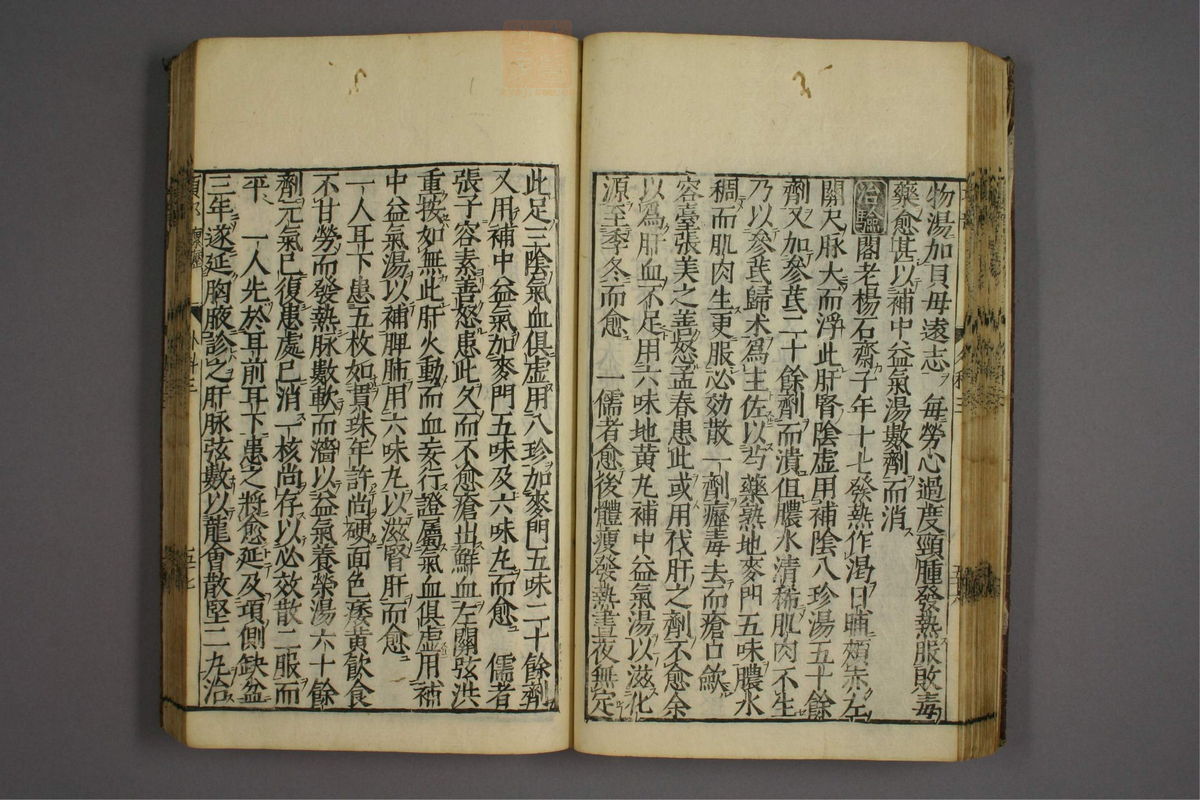 物湯加貝母遠志　每勞心過度頸腫發熱服敗毒
藥愈甚以補中益氣湯數劑而消
治驗　閣老楊石齋子年十七發熱作渴日晡頰赤左
關尺脉大而浮此肝腎陰虛用補陰八珍湯五十餘
劑又加參芪二十餘劑而潰但膿水清稀肌肉不生
乃以參芪歸术爲主佐以芍藥熟地麥門五味膿水
稠而肌肉生更服必効散一劑癧毒去而瘡口歛
容臺張美之善怒孟春患此或用伐肝之劑不愈余
以爲肝血不足用六味地黄丸補中益氣湯以滋化
源至季冬而愈　一儒者愈後體瘦發熱晝夜無定
此足三陰氣血俱虛用八珍加麥門五味二十餘劑
又用補中益氣加麥門五味及六味丸而愈　儒者
張子容素善怒患此久而不愈瘡出鮮血左關弦洪
重按如無此肝火動而血妄行證屬氣血俱虛用補
中益氣湯以補脾肺用六味丸以滋腎肝而愈
一人耳下患五枚如貫珠年許尚硬面色痿黄飲食
不甘勞而發熱脉數軟而濇以益氣養榮湯六十餘
劑元氣已復患處已消一核尚存以必效散二服而
平　一人先於耳前耳下患之將愈延及項側缺盆
三年遂延胸腋診之肝脉弦數以龍會散堅二丸治
外科三